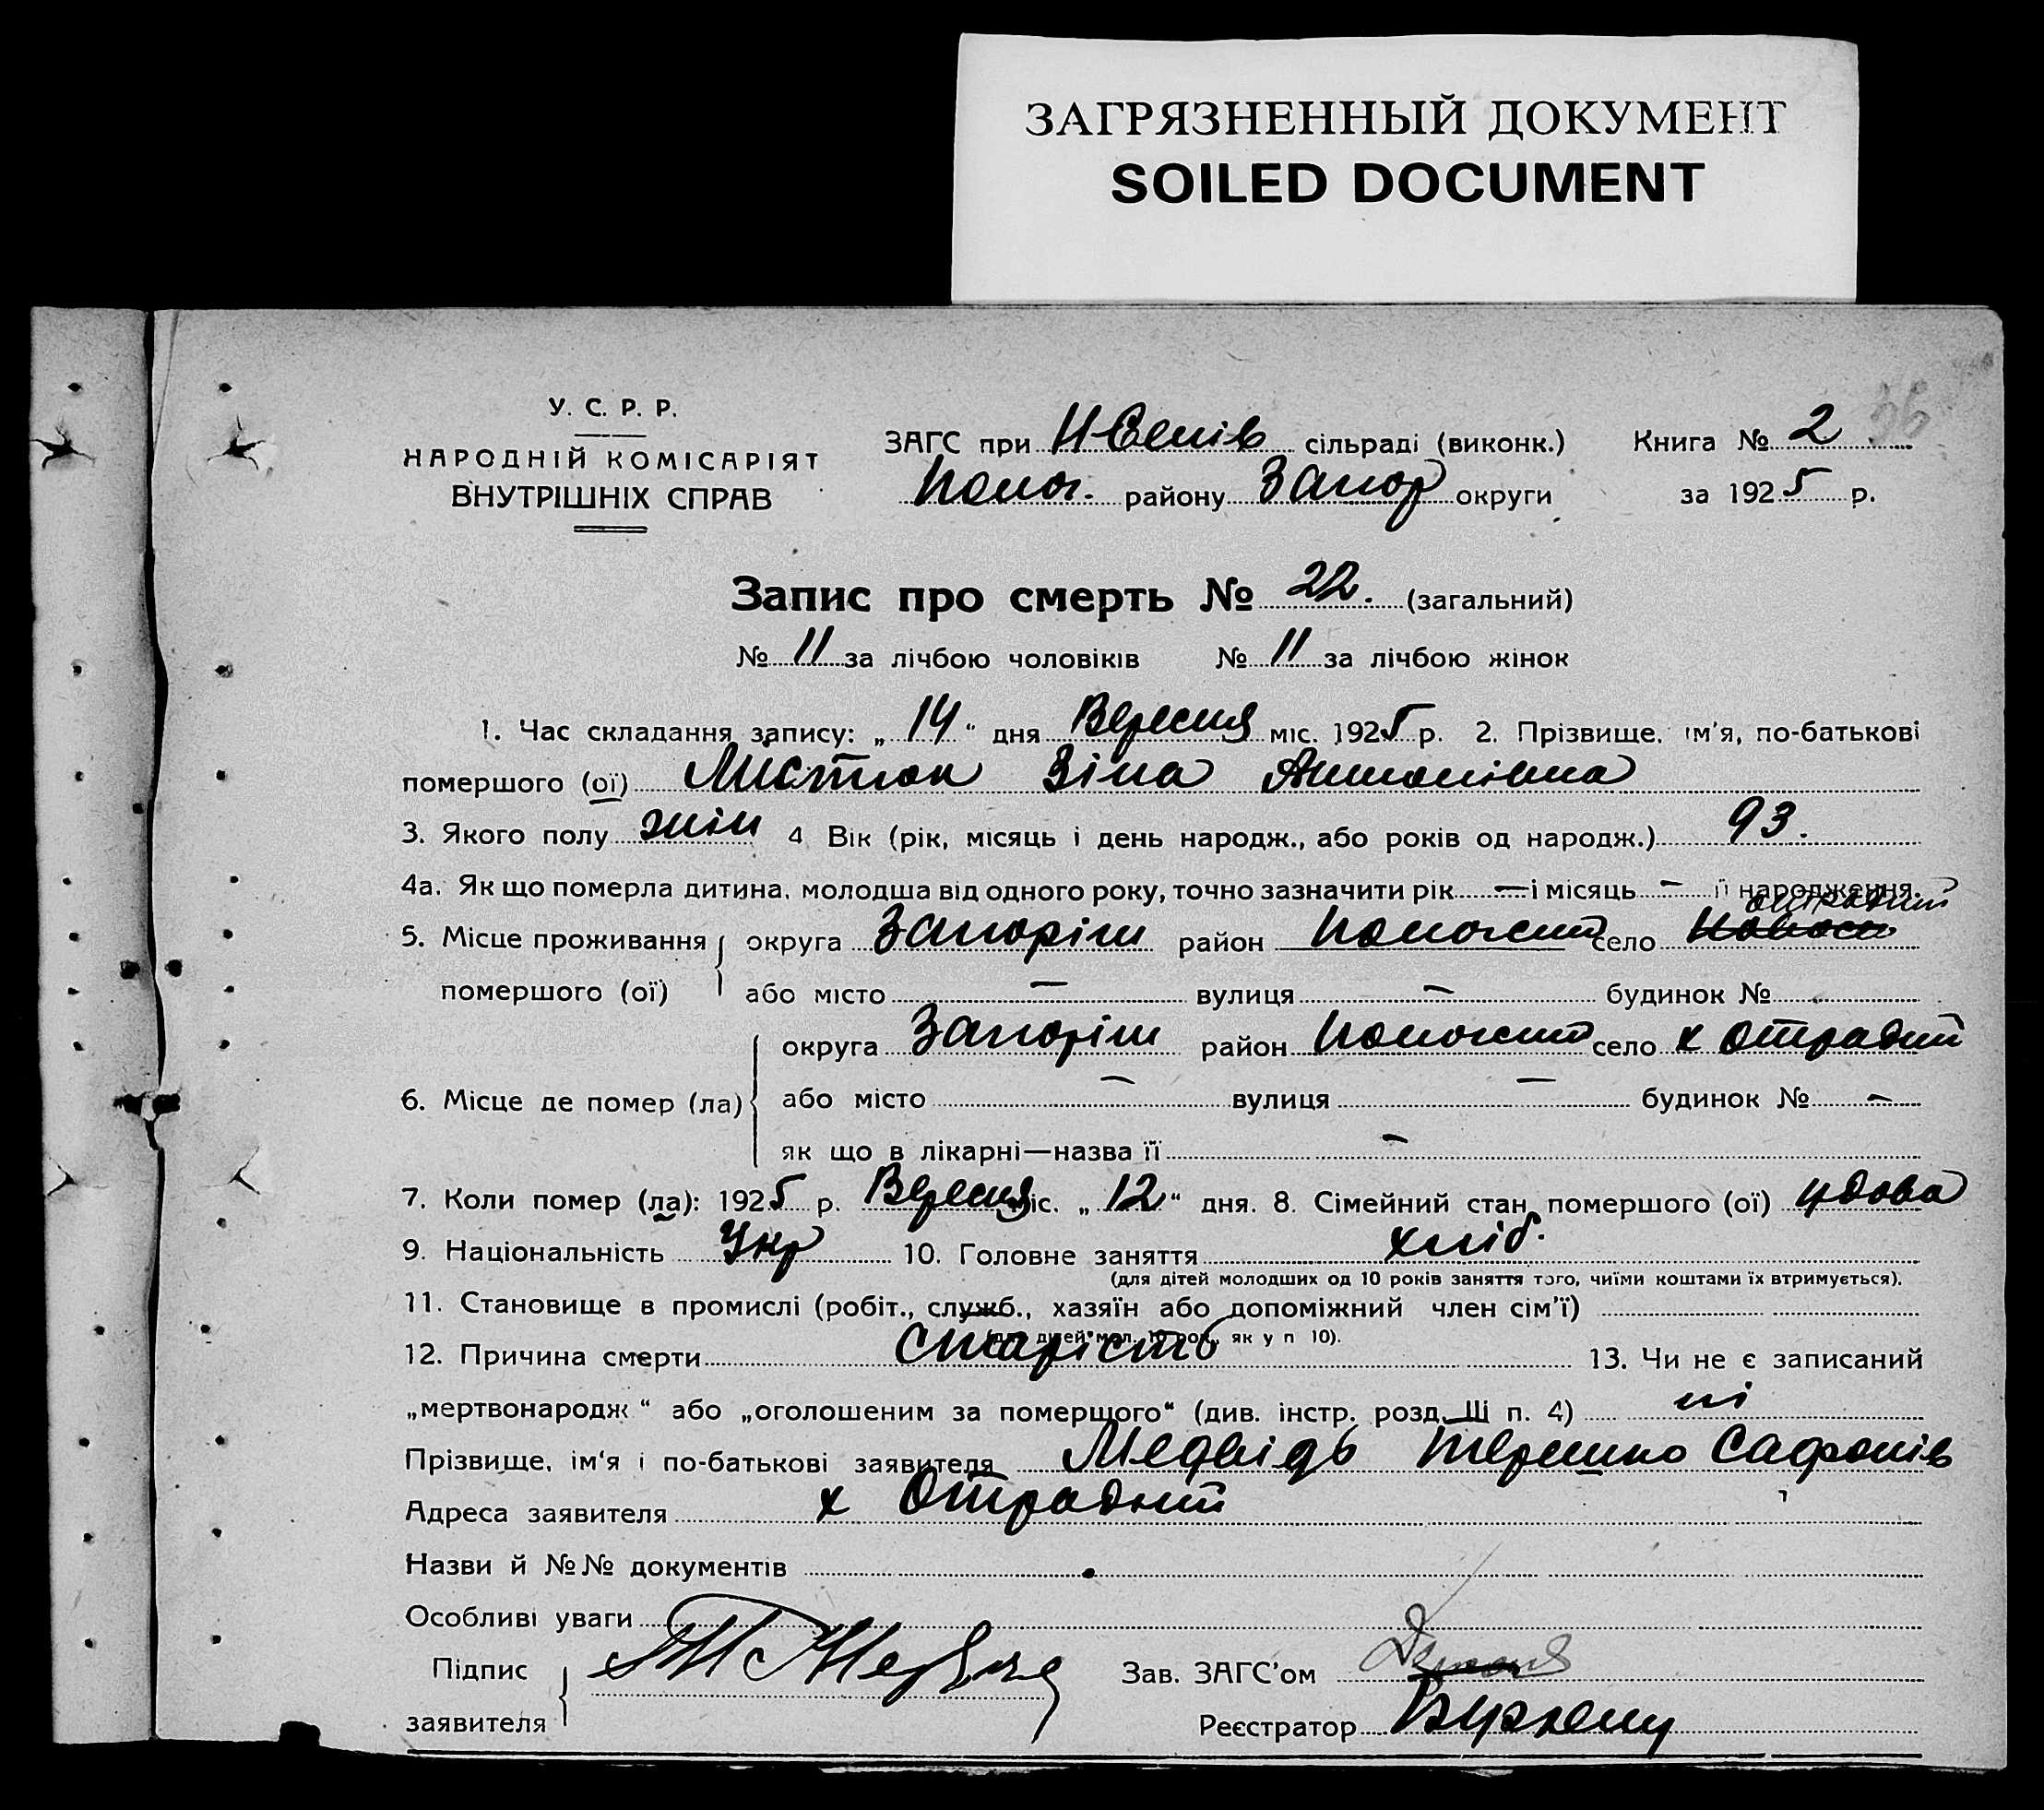 ЗАГРЯЗНЕННЫЙ ДОКУМЕНТ
SOILED DOCUMENT
У. С. Р. Р.
НАРОДНІЙ КОМІСАРІЯТ
ВНУТРІШНІХ СПРАВ
ЗАГС при сільраді (виконк.) Книга № 2 36
Полог. району Запор округи за 1925 р.
Запис про смерть № 22. (загальний)
№ 11 за лічбою чоловіків № 11 за лічбою жінок
1. Час складання запису: „ 14 “ дня Вересня міс. 1925 р. 2. Прізвище, ім'я, по-батькові
помершого (ої) Зіна Антонівна
3. Якого полу жін 4 Вік (рік, місяць і день народж., або років од народж.) 93.
4а. Як що померла дитина, молодша від одного року, точно зазначити рік — і місяць — її народження.
5. Місце проживання округа Запоріш район Пологский село отрадний
помершого (ої) або місто — вулиця — будинок №
6. Місце де помер (ла) округа Запоріш район Пологский село х Отрадний
або місто — вулиця — будинок № —
як що в лікарні—назва її —
7. Коли помер (ла): 1925 р. Вересня міс. „ 12 “ дня. 8. Сімейний стан помершого (ої) удова
9. Національність Укр 10. Головне заняття хліб.
(для дітей молодших од 10 років заняття того, чиїми коштами їх втримується).
11. Становище в промислі (робіт., служб., хазяїн або допоміжний член сім'ї)
(для дітей мол. 10 рок., як у п 10).
12. Причина смерти старість 13. Чи не є записаний
„мертвонародж “ або „оголошеним за померщого“ (див. інстр. розд. III п. 4) ні
Прізвище, ім'я і по-батькові заявителя Медвідь Терешко Сафонів
Адреса заявителя х Отрадний
Назви й №№ документів
Особливі уваги
Підпис
заявителя
Зав. ЗАГС'ом
Реєстратор